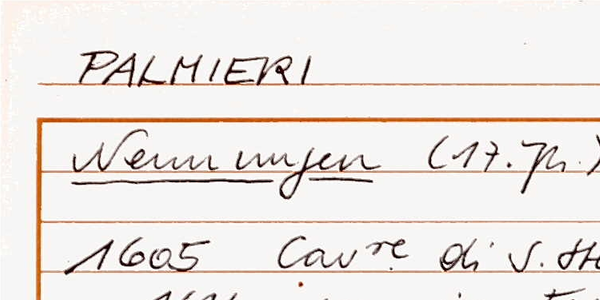 PALMIERI
Nennungen (17. Jh.)
1605 Cav.re di S. St